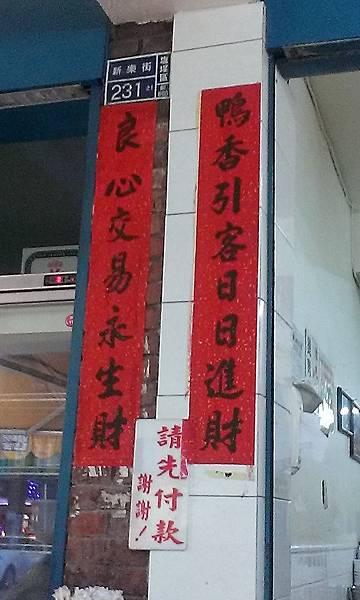 新樂街
231 之1
鹽埕區
鴨香引客日日進財
良心交易永生財
請先付款
謝謝！